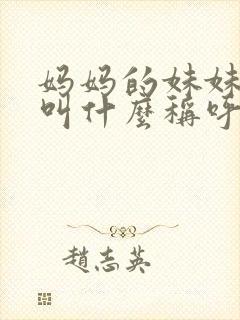 妈妈的妹妹
叫什麼稱呼
趙志英